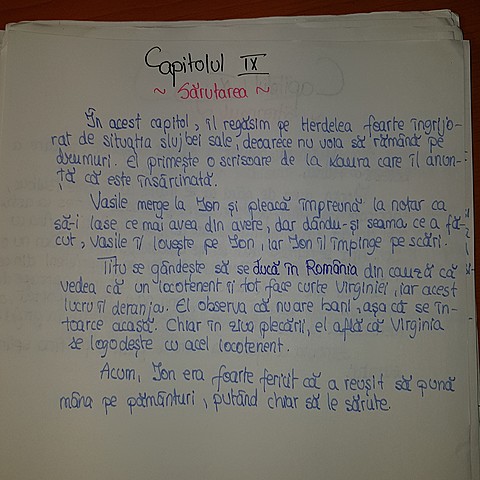 Capitolul IX
~ Sărutarea ~
În acest capitol, îl regăsim pe Herdelea foarte îngrijo-
rat de situația slujbei sale, deoarece nu voia să rămână pe
drumuri. El primește o scrisoare de la Laura care îl anun-
ță că este însărcinată.
Vasile merge la Ion și pleacă împreună la notar ca
să-i lase ce mai avea din avere, dar dându-și seama ce a fă-
cut, Vasile îl lovește pe Ion, iar Ion îl împinge pe scări.
Titu se gândește să se ducă în România din cauză că
vedea că un locotenent îi tot face curte Virginiei, iar acest
lucru îl deranja. El observa că nu are bani, așa că se în-
toarce acasă. Chiar în ziua plecării, el află că Virginia
se logodește cu acel locotenent.
Acum, Ion era foarte fericit că a reușit să pună
mâna pe pământuri, putând chiar să le sărute.